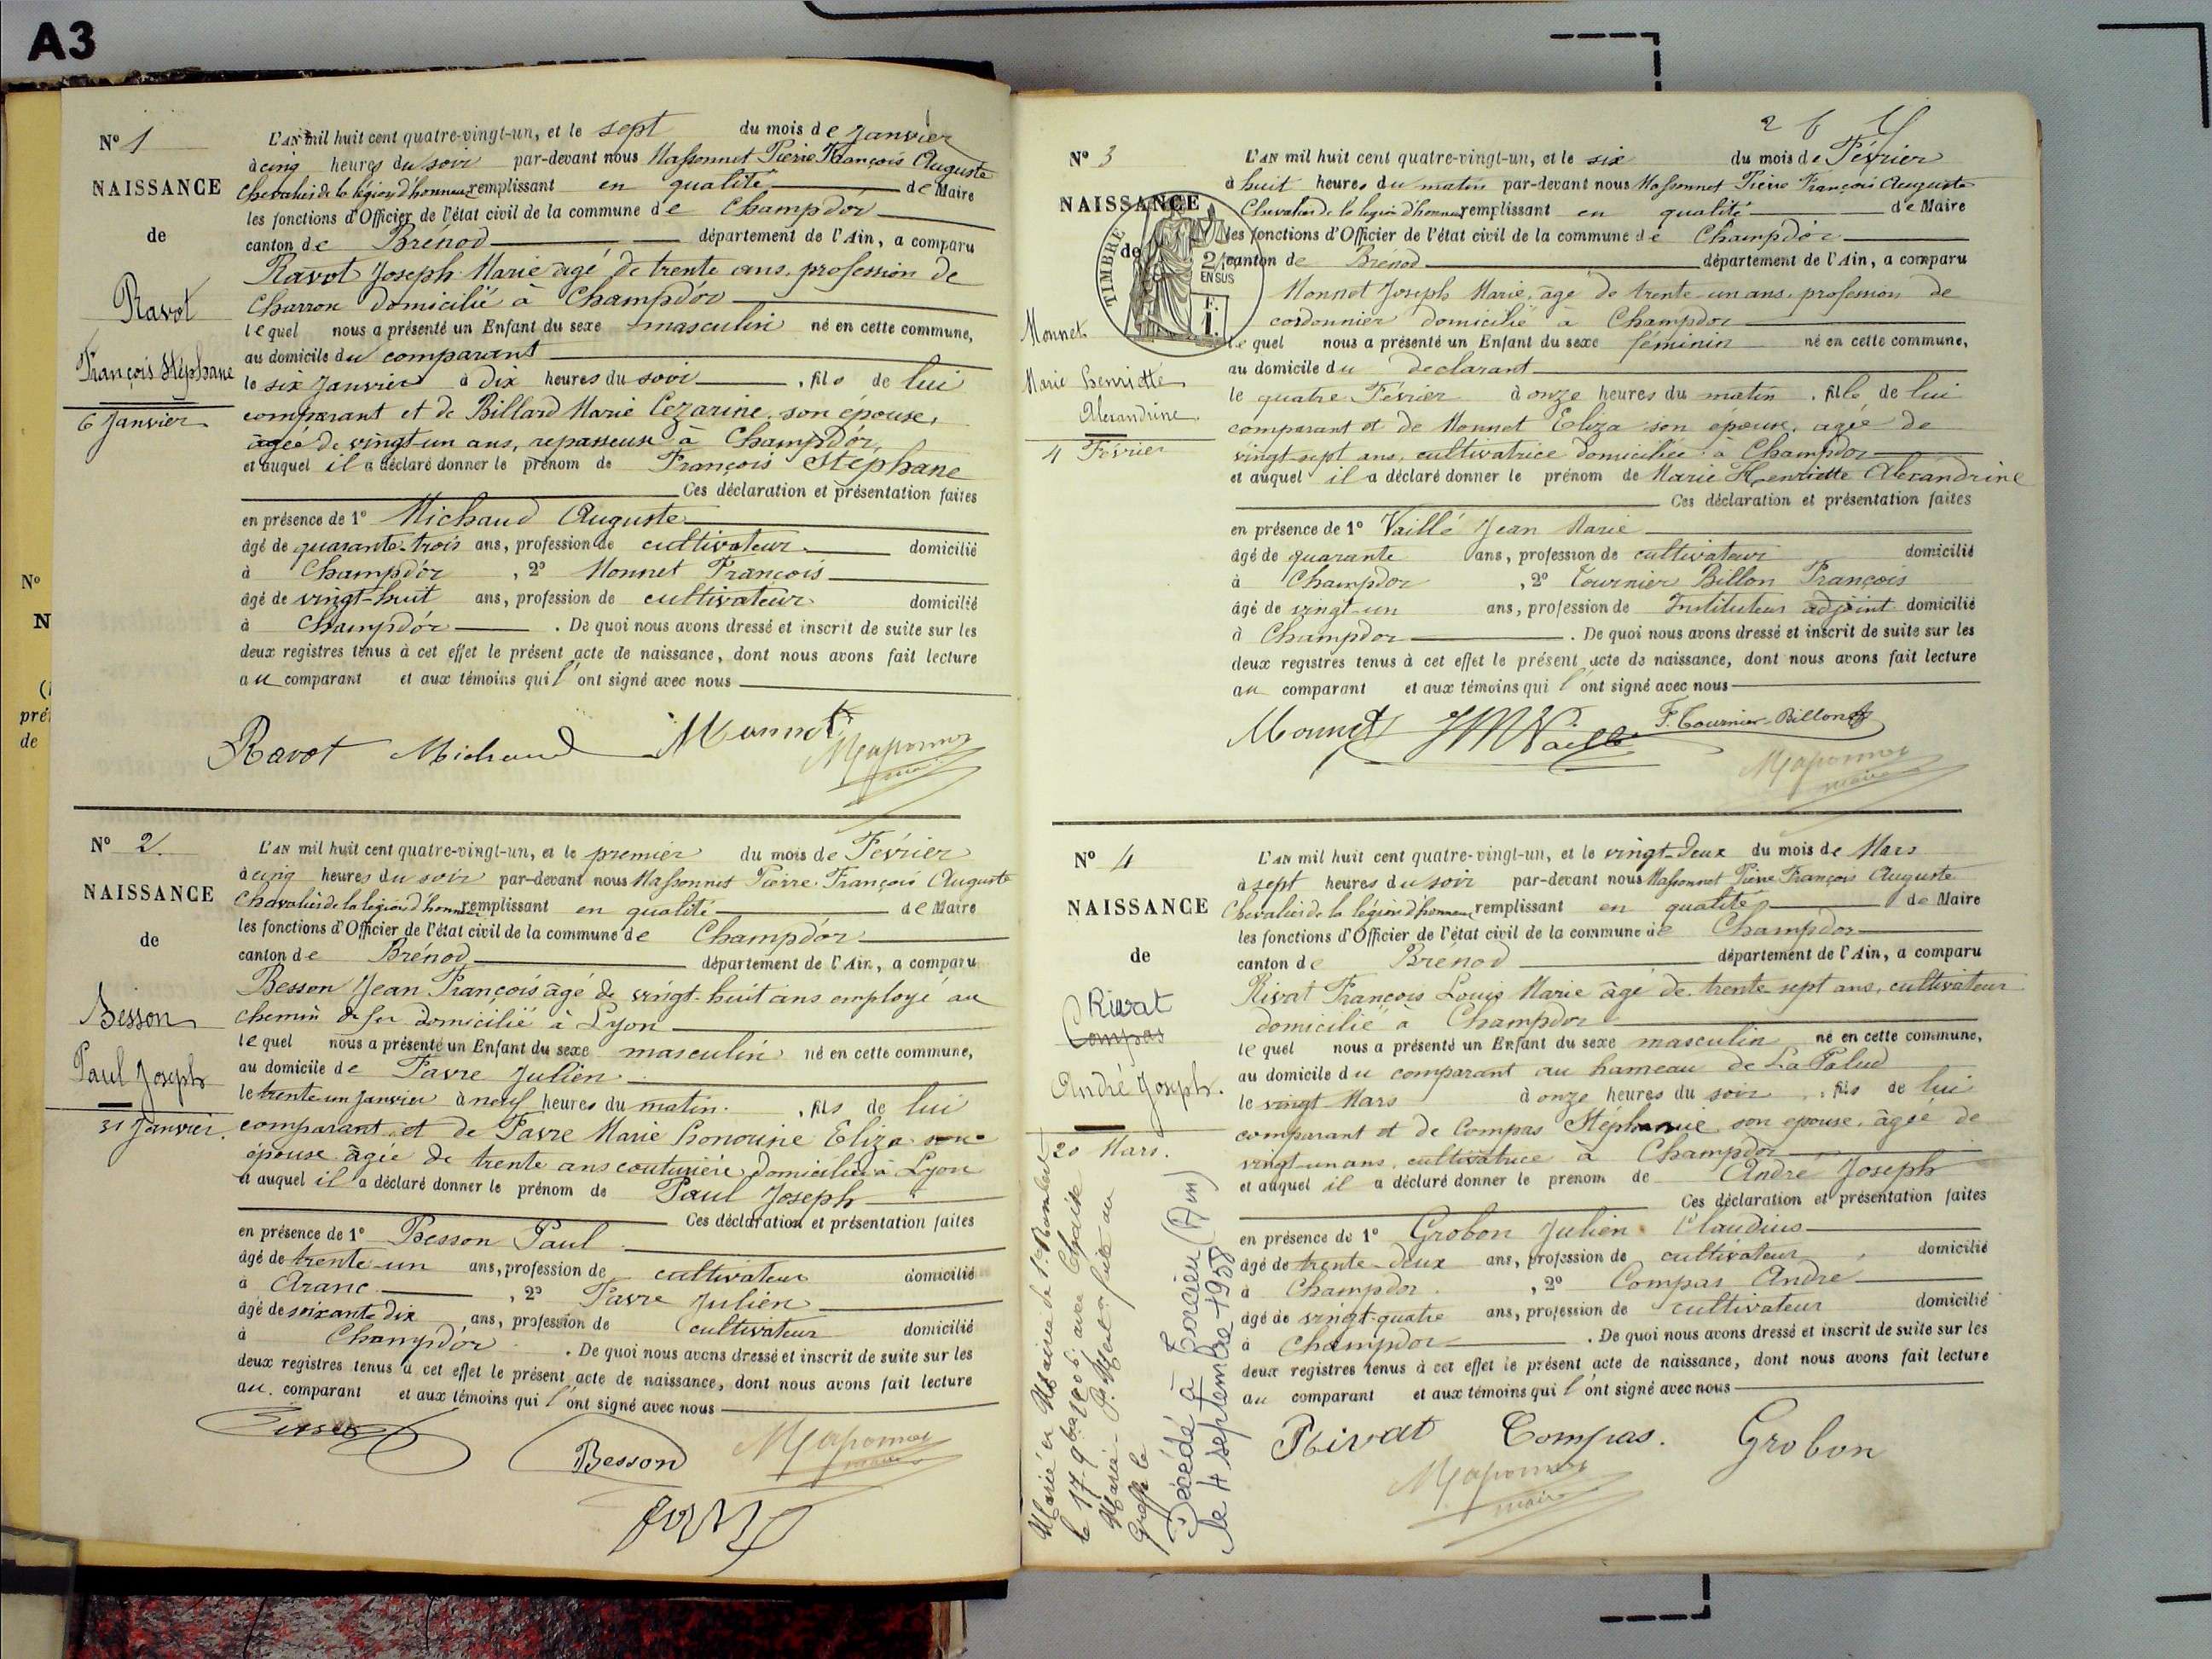 A3
N° 1
NAISSANCE
de
Ravot
François Stéphane
6 Janvier
L'AN mil huit cent quatre-vingt-un, et le sept du mois de Janvier
à cinq heures du soir par-devant nous Massonnet Pierre François Auguste
Chevalier de la légion d'honneur remplissant en qualité de Maire
les fonctions d'Officier de l'état civil de la commune de Champdór
canton de Brénod département de l'Ain, a comparu
Ravot Joseph Marie agé de trente ans, profession de
Charron domicilié à Champdór
lequel nous a présenté un Enfant du sexe masculin né en cette commune,
au domicile du comparant
le six Janvier à dix heures du soir, fils de lui
comparant et de Billard Marie Cezarine, son épouse,
agée de vingt-un ans, repasseuse à Champdór,
et auquel il a déclaré donner le prénom de François Stéphane
Ces déclaration et présentation faites
en présence de 1° Michaud Auguste
âgé de quarante-trois ans, profession de cultivateur domicilié
à Champdór, 2° Monnet François
âgé de vingt-huit ans, profession de cultivateur domicilié
à Champdór. De quoi nous avons dressé et inscrit de suite sur les
deux registres tenus à cet effet le présent acte de naissance, dont nous avons fait lecture
au comparant et aux témoins qui l'ont signé avec nous
Ravot Michaud Monnet
Massonnet
maire
N° 2
NAISSANCE
de
Besson
Paul Joseph
31 Janvier.
L'AN mil huit cent quatre-vingt-un, et le premier du mois de Février
à cinq heures du soir par-devant nous Massonnet Pierre François Auguste
Chevalier de la légion d'honneur remplissant en qualité de Maire
les fonctions d'Officier de l'état civil de la commune de Champdór
canton de Brénod département de l'Ain, a comparu
Besson Jean François âgé de vingt-huit ans employé au
chemin de fer domicilié à Lyon
lequel nous a présenté un Enfant du sexe masculin né en cette commune,
au domicile de Favre Julien
le trente-un Janvier à neuf heures du matin, fils de lui
comparant et de Favre Marie Honorine Eliza son
épouse âgée de trente ans couturière domiciliée à Lyon
et auquel il a déclaré donner le prénom de Paul Joseph
Ces déclaration et présentation faites
en présence de 1° Besson Paul
âgé de trente-un ans, profession de cultivateur domicilié
à Aranc, 2° Favre Julien
âgé de soixante dix ans, profession de cultivateur domicilié
à Champdór. De quoi nous avons dressé et inscrit de suite sur les
deux registres tenus à cet effet le présent acte de naissance, dont nous avons fait lecture
au comparant et aux témoins qui l'ont signé avec nous
Besson
Massonnet
maire
N° 3
NAISSANCE
de
TIMBRE
EN SUS
Monnet
Marie Henriette
Alexandrine
4 Février
L'AN mil huit cent quatre-vingt-un, et le six du mois de Février
à huit heures du matin par-devant nous Massonnet Pierre François Auguste
Chevalier de la légion d'honneur remplissant en qualité de Maire
les fonctions d'Officier de l'état civil de la commune de Champdor
canton de Brénod département de l'Ain, a comparu
Monnet Joseph Marie, âgé de trente-un ans, profession de
cordonnier domicilié à Champdor
lequel nous a présenté un Enfant du sexe féminin né en cette commune,
au domicile du declarant
le quatre Février à onze heures du matin, fille de lui
comparant et de Monnet Eliza son épouse, agée de
vingt sept ans, cultivatrice domiciliée à Champdor
et auquel il a déclaré donner le prénom de Marie Henriette Alexandrine
Ces déclaration et présentation faites
en présence de 1° Vaillé Jean Marie
âgé de quarante ans, profession de cultivateur domicilié
à Champdor, 2° Tournier Billon François
âgé de vingt-un ans, profession de Instituteur adjoint domicilié
à Champdor. De quoi nous avons dressé et inscrit de suite sur les
deux registres tenus à cet effet le présent acte de naissance, dont nous avons fait lecture
au comparant et aux témoins qui l'ont signé avec nous
Monnet JM Vaillé F. Tournier-Billon
Massonnet
maire
N° 4
NAISSANCE
de
Rivat
Compas
André Joseph.
20 Mars.
L'AN mil huit cent quatre-vingt-un, et le vingt-deux du mois de Mars
à sept heures du soir par-devant nous Massonnet Pierre François Auguste
Chevalier de la légion d'honneur remplissant en qualité de Maire
les fonctions d'Officier de l'état civil de la commune de Champdor
canton de Brénod département de l'Ain, a comparu
Rivat François Louis Marie âgé de trente-sept ans, cultivateur
domicilié à Champdor
lequel nous a présenté un Enfant du sexe masculin né en cette commune,
au domicile du comparant au hameau de La Palud
le vingt Mars à onze heures du soir, fils de lui
comparant et de Compas Stéphanie son epouse, âgée de
vingt-un ans, cultivatrice à Champdor
et auquel il a déclaré donner le prénom de André Joseph
Ces déclaration et présentation faites
en présence de 1° Grobon Julien Claudius
âgé de trente-deux ans, profession de cultivateur domicilié
à Champdor, 2° Compas André
âgé de vingt-quatre ans, profession de cultivateur domicilié
à Champdor. De quoi nous avons dressé et inscrit de suite sur les
deux registres tenus à cet effet le présent acte de naissance, dont nous avons fait lecture
au comparant et aux témoins qui l'ont signé avec nous
Rivat Compas. Grobon
Massonnet
maire
Marié en Mairie de St Rambert
le 17 9bre avec
Marie faite au
Greffe le
Décédé à Torcieu (Ain)
le 4 septembre 1958